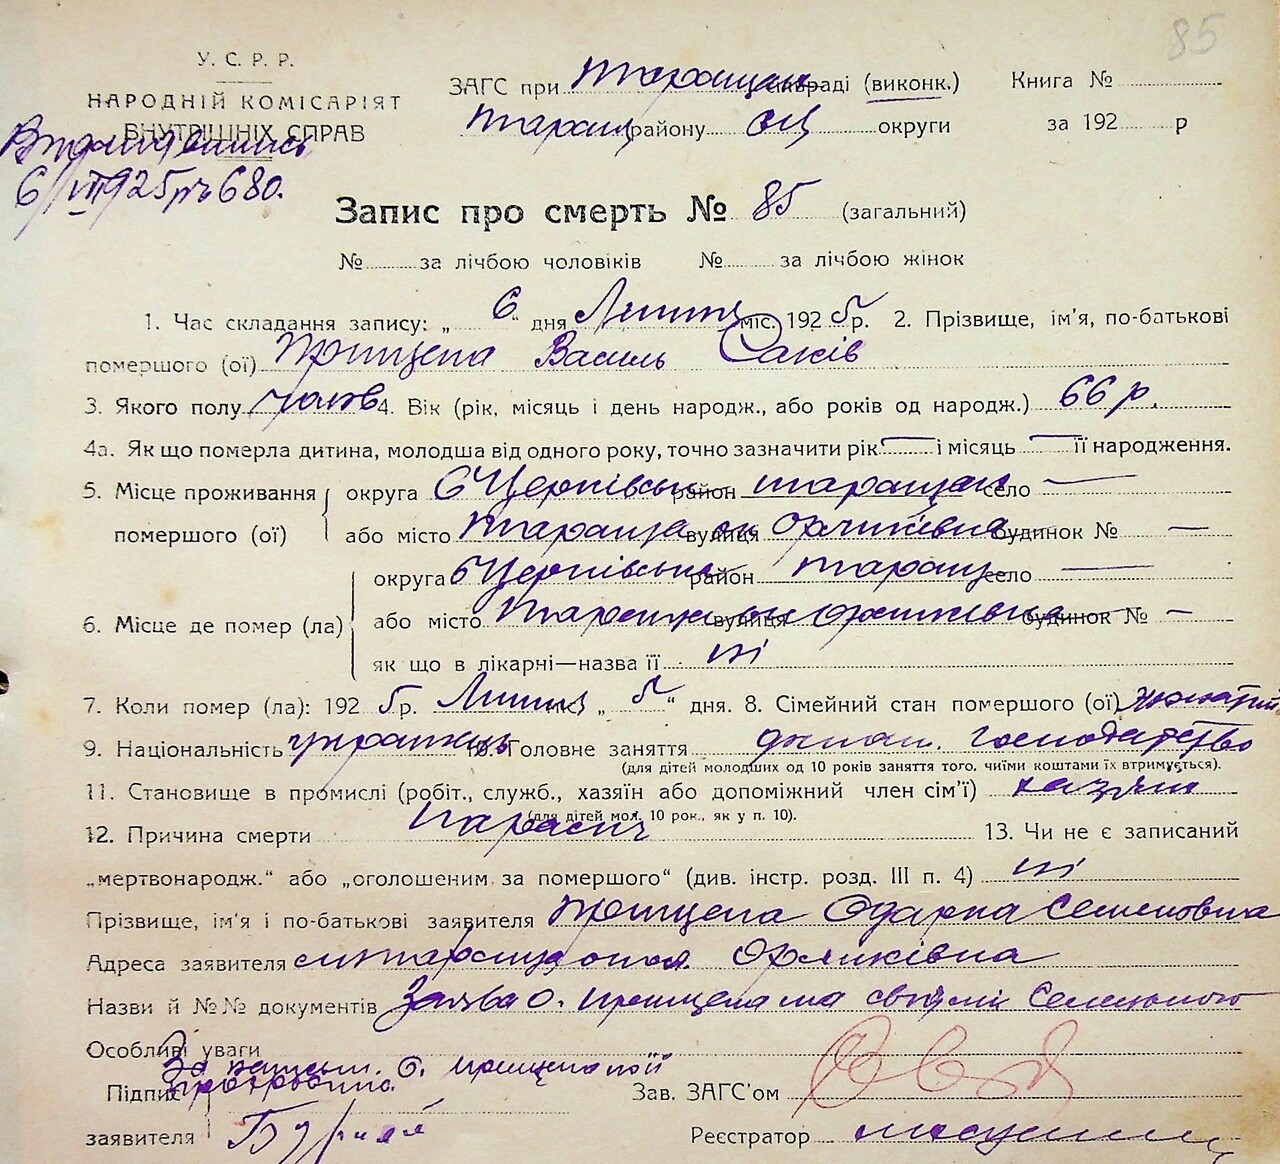 85
У. С. Р. Р.
НАРОДНІЙ КОМІСАРІЯТ
ВНУТРІШНІХ СПРАВ
6/VII 925 р № 680.
ЗАГС при Таращан міськраді (виконк.) Книга №
Таращ району БЦ округи за 192 р
Запис про смерть № 85 (загальний)
№ за лічбою чоловіків № за лічбою жінок
1. Час складання запису: „ 6 “ дня Липня міс. 192 5 р. 2. Прізвище, ім'я, по-батькові
помершого (ої) Прищепа Василь Саків
3. Якого полу чолов 4. Вік (рік, місяць і день народж., або років од народж.) 66 р.
4а. Як що померла дитина, молодша від одного року, точно зазначити рік — і місяць — її народження.
5. Місце проживання округа БЦерківськ район таращан село —
помершого (ої) або місто Тараща вулиця будинок № —
округа БЦерківськ район таращ село —
6. Місце де помер (ла) або місто Тараща вулиця будинок № —
як що в лікарні—назва її ні
7. Коли помер (ла): 192 5 р. Липня „ 5 “ дня. 8. Сімейний стан помершого (ої) жонатий
9. Національність українець 10. Головне заняття господарство
(для дітей молодших од 10 років заняття того, чиїми коштами їх втримується).
11. Становище в промислі (робіт., служб., хазяїн або допоміжний член сім'ї) хазяїн
(для дітей мол. 10 рок., як у п. 10).
12. Причина смерти 13. Чи не є записаний
„мертвонародж.“ або „оголошеним за помершого“ (див. інстр. розд. III п. 4) ні
Прізвище, ім'я і по-батькові заявителя Прищепа Одарка Семеновна
Адреса заявителя
Назви й №№ документів Заява О. Прищепа та
Особливі уваги
За О. Прищепової
Підпис Зав. ЗАГС'ом
заявителя Реєстратор